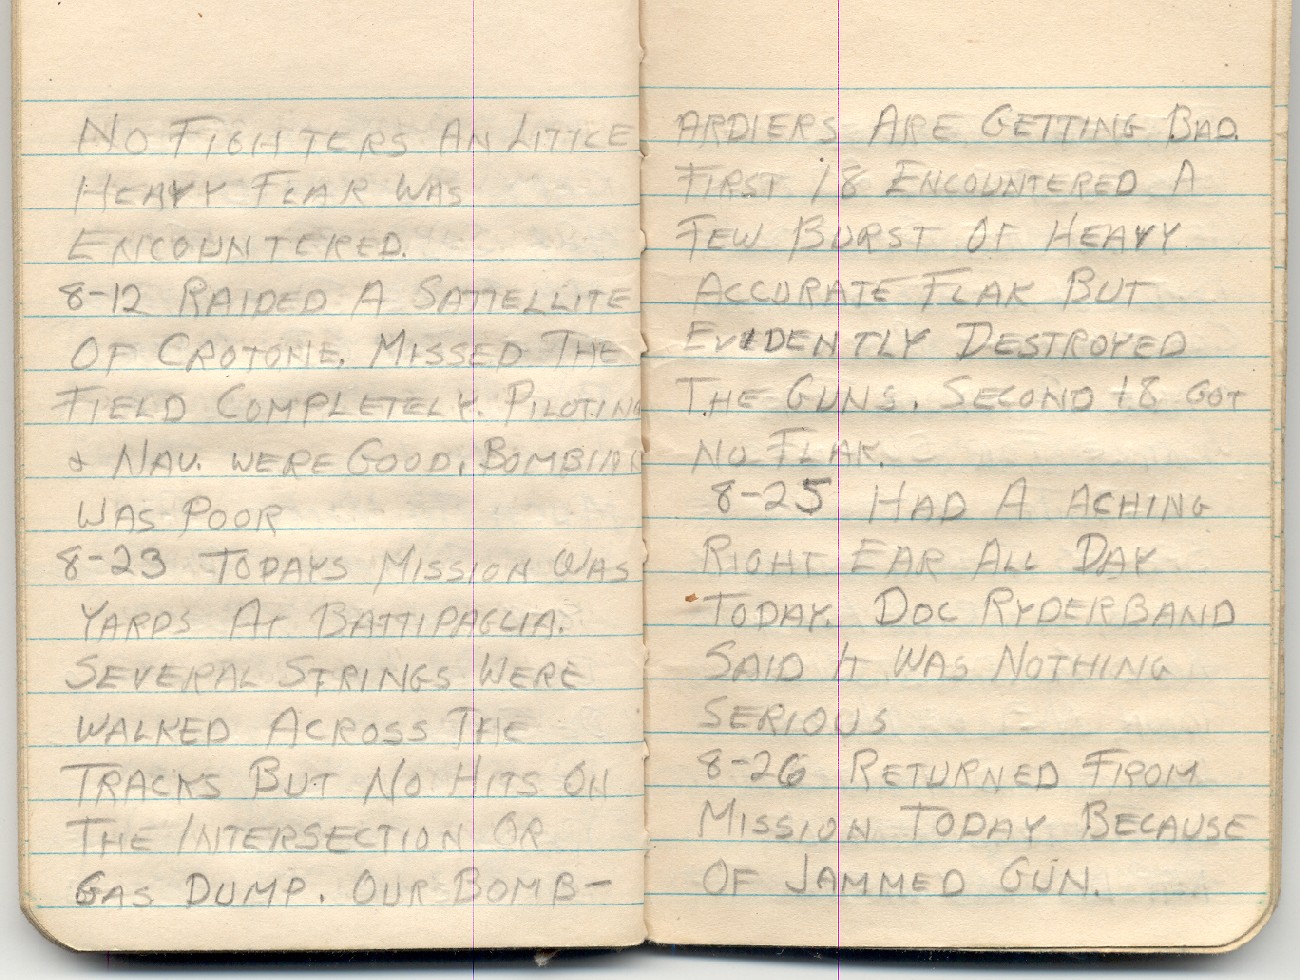 NO FIGHTERS AN LITTLE
HEAVY FLAK WAS
ENCOUNTERED.
8-12 RAIDED A SATTELLITE
OF CROTONE. MISSED THE
FIELD COMPLETELY. PILOTING
& NAV. WERE GOOD, BOMBING
WAS POOR
8-23 TODAYS MISSION WAS
YARDS AT BATTIPAGLIA.
SEVERAL STRINGS WERE
WALKED ACROSS THE
TRACKS BUT NO HITS ON
THE INTERSECTION OR
GAS DUMP. OUR BOMB-
ARDIERS ARE GETTING BAD.
FIRST 18 ENCOUNTERED A
FEW BURST OF HEAVY
ACCURATE FLAK BUT
EVIDENTLY DESTROYED
THE GUNS. SECOND 18 GOT
NO FLAK.
8-25 HAD A ACHING
RIGHT EAR ALL DAY
TODAY. DOC RYDERBAND
SAID IT WAS NOTHING
SERIOUS
8-26 RETURNED FROM
MISSION TODAY BECAUSE
OF JAMMED GUN.